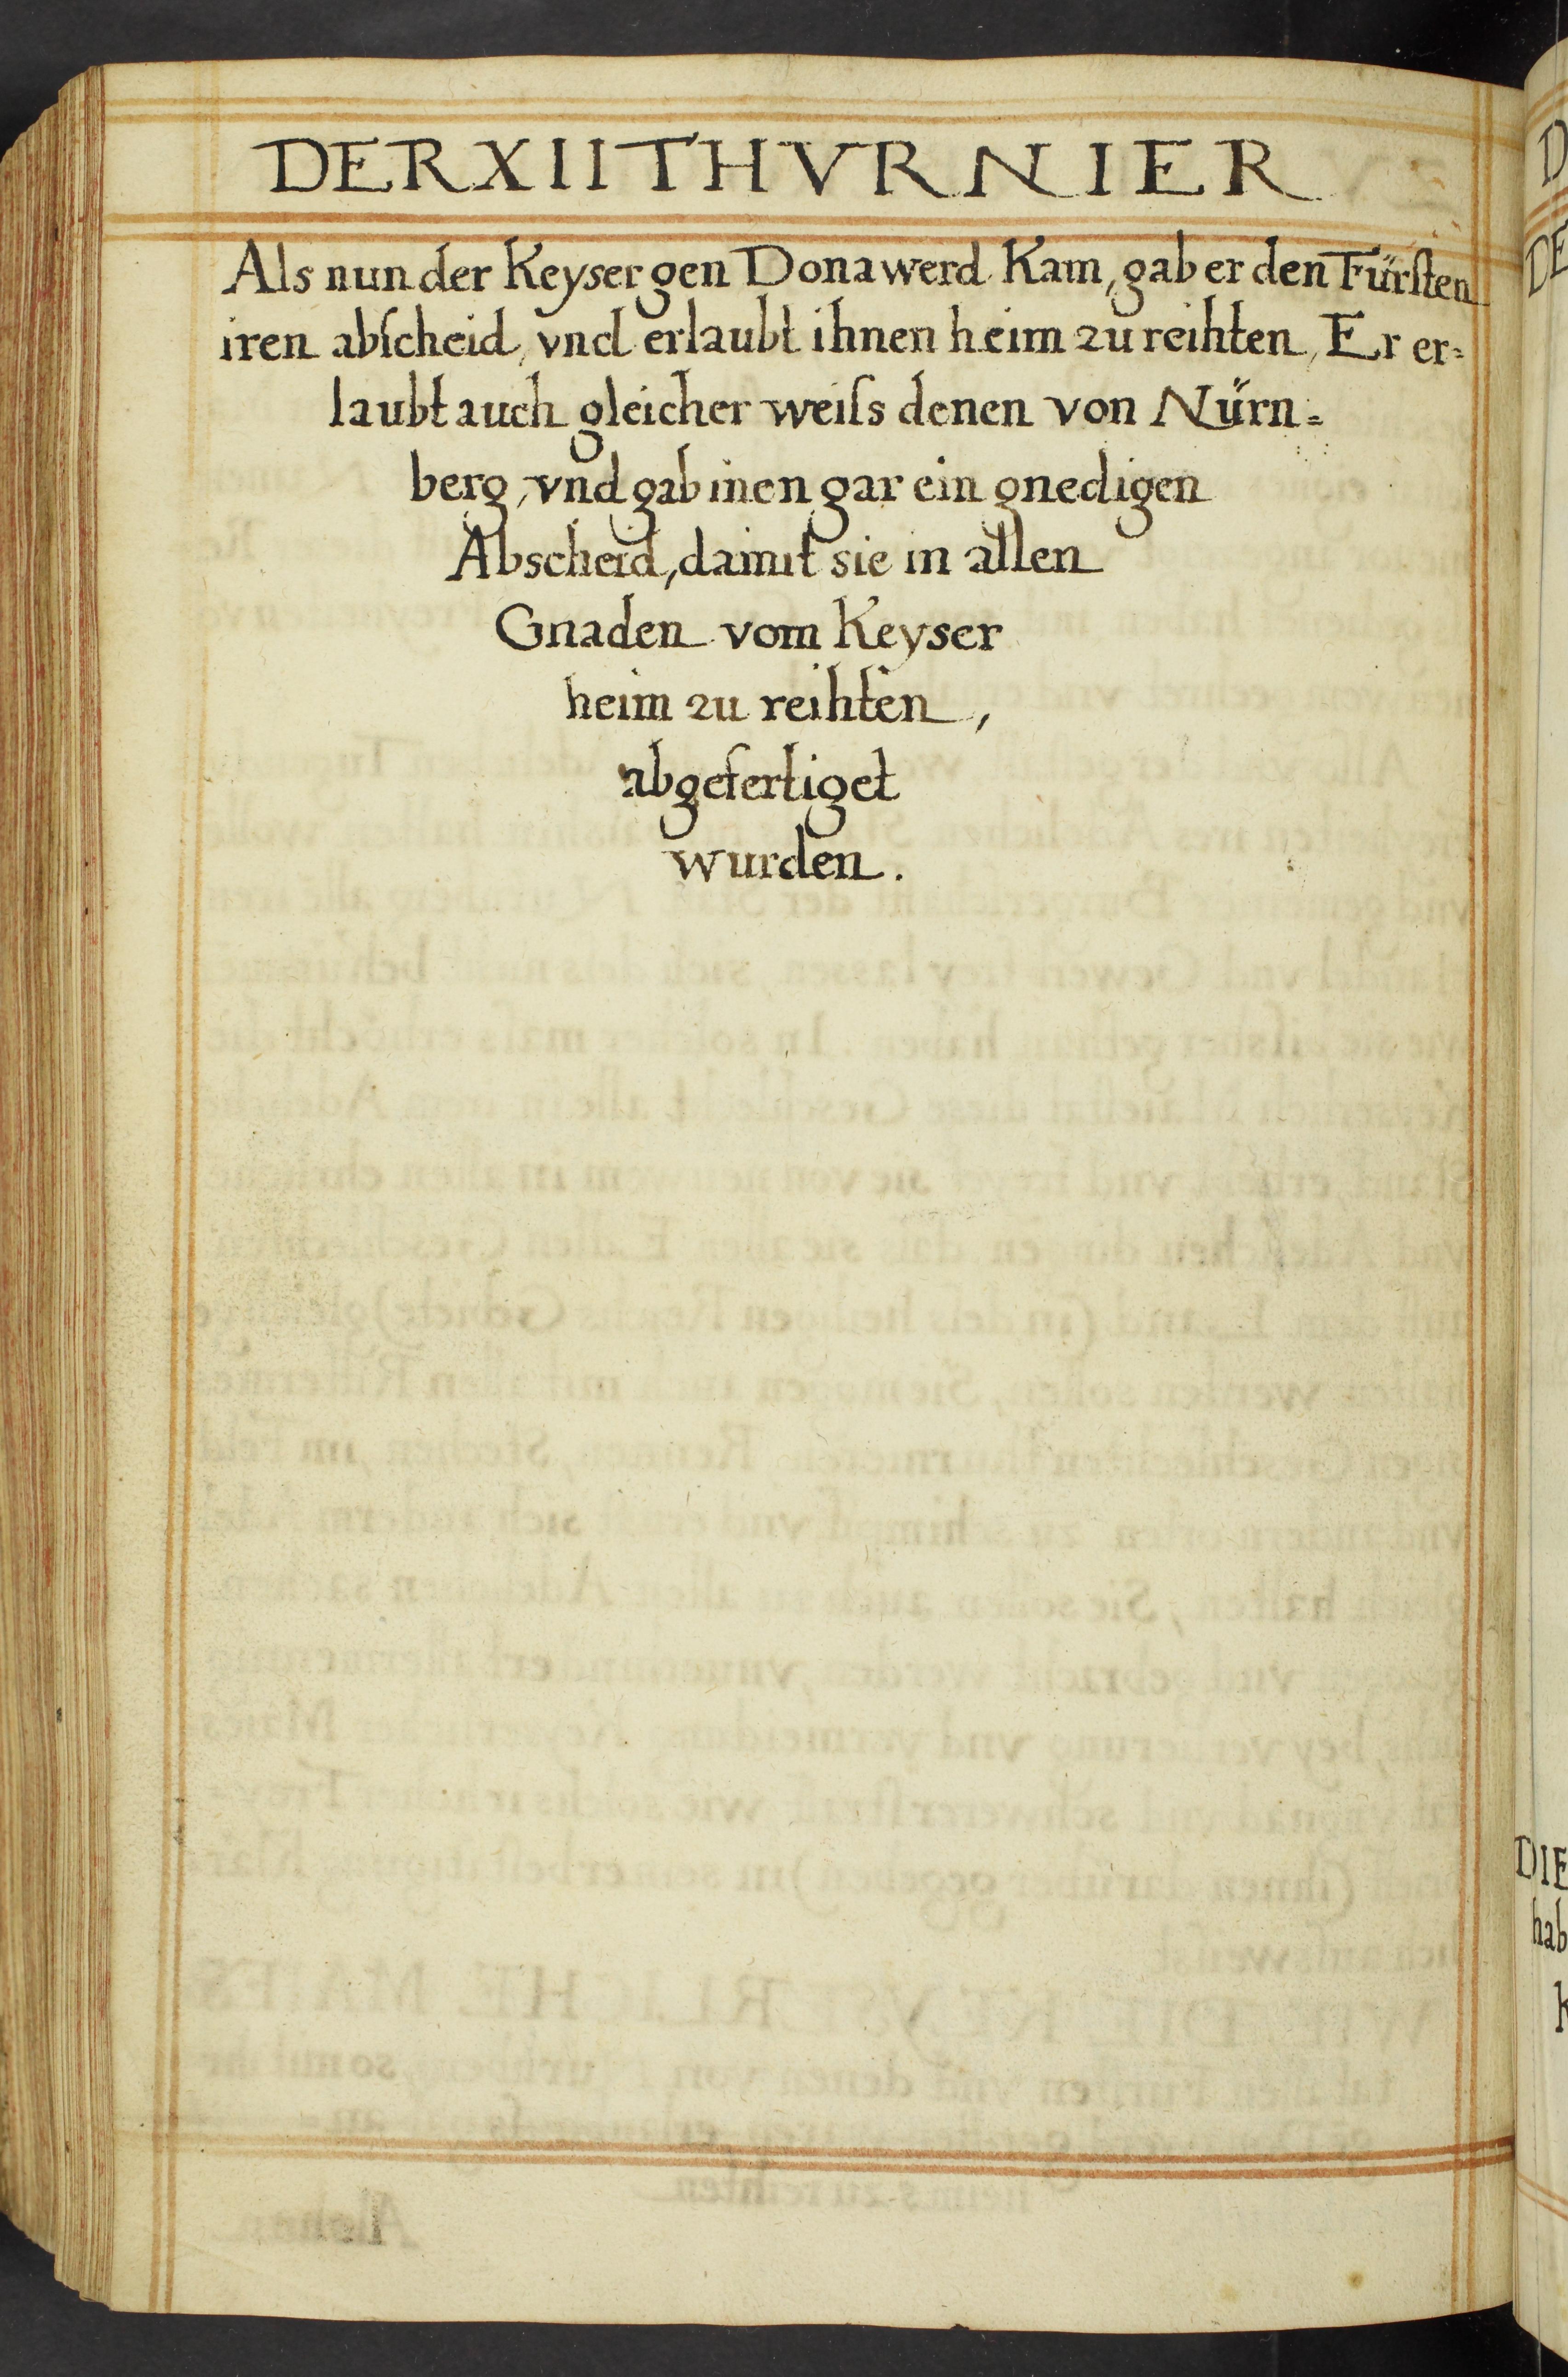 DER XII THVRNIER
Als nun der Keyser gen Donawerd Kam, gab er den Fürsten
iren abſcheid, vnd erlaubt ihnen heim zu reihten, Er er=
laubt auch gleicher weiſs denen von Nürn=
berg, vnd gab inen gar ein gnedigen
Abscheid, damit sie in allen
Gnaden vom Keyser
heim zu reihten,
abgefertiget
wurden.